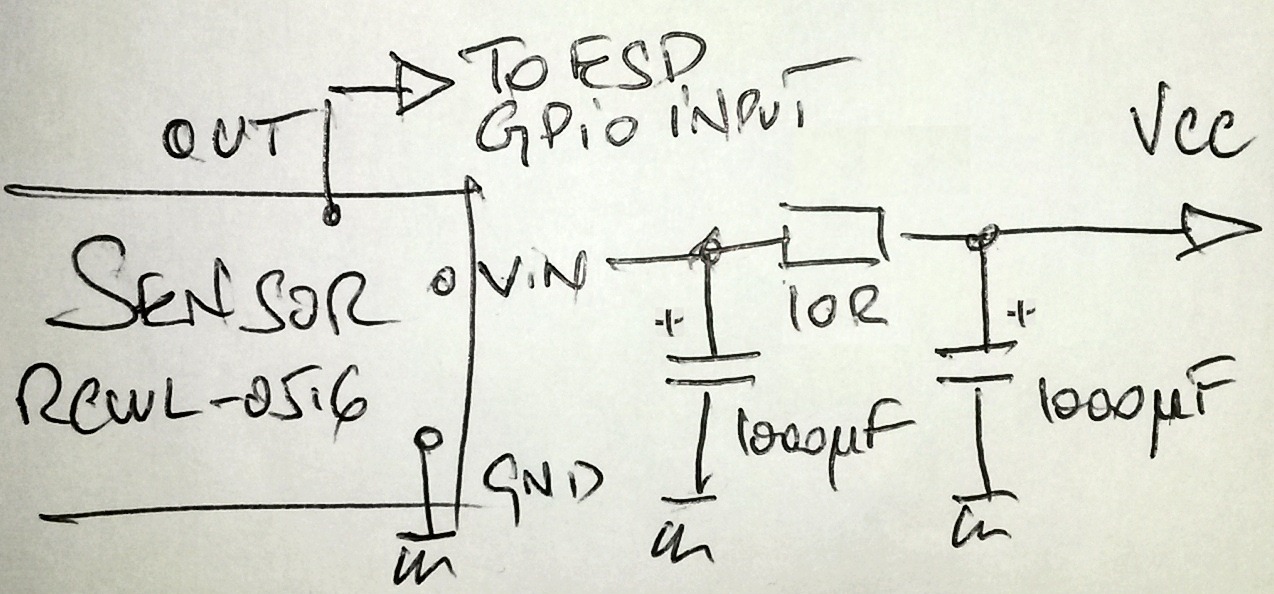 TO ESP
GPiO iNPUT
OUT
VCC
SENSOR
RCWL-0516
ViN
+
10R
+
1000µF
1000µF
GND